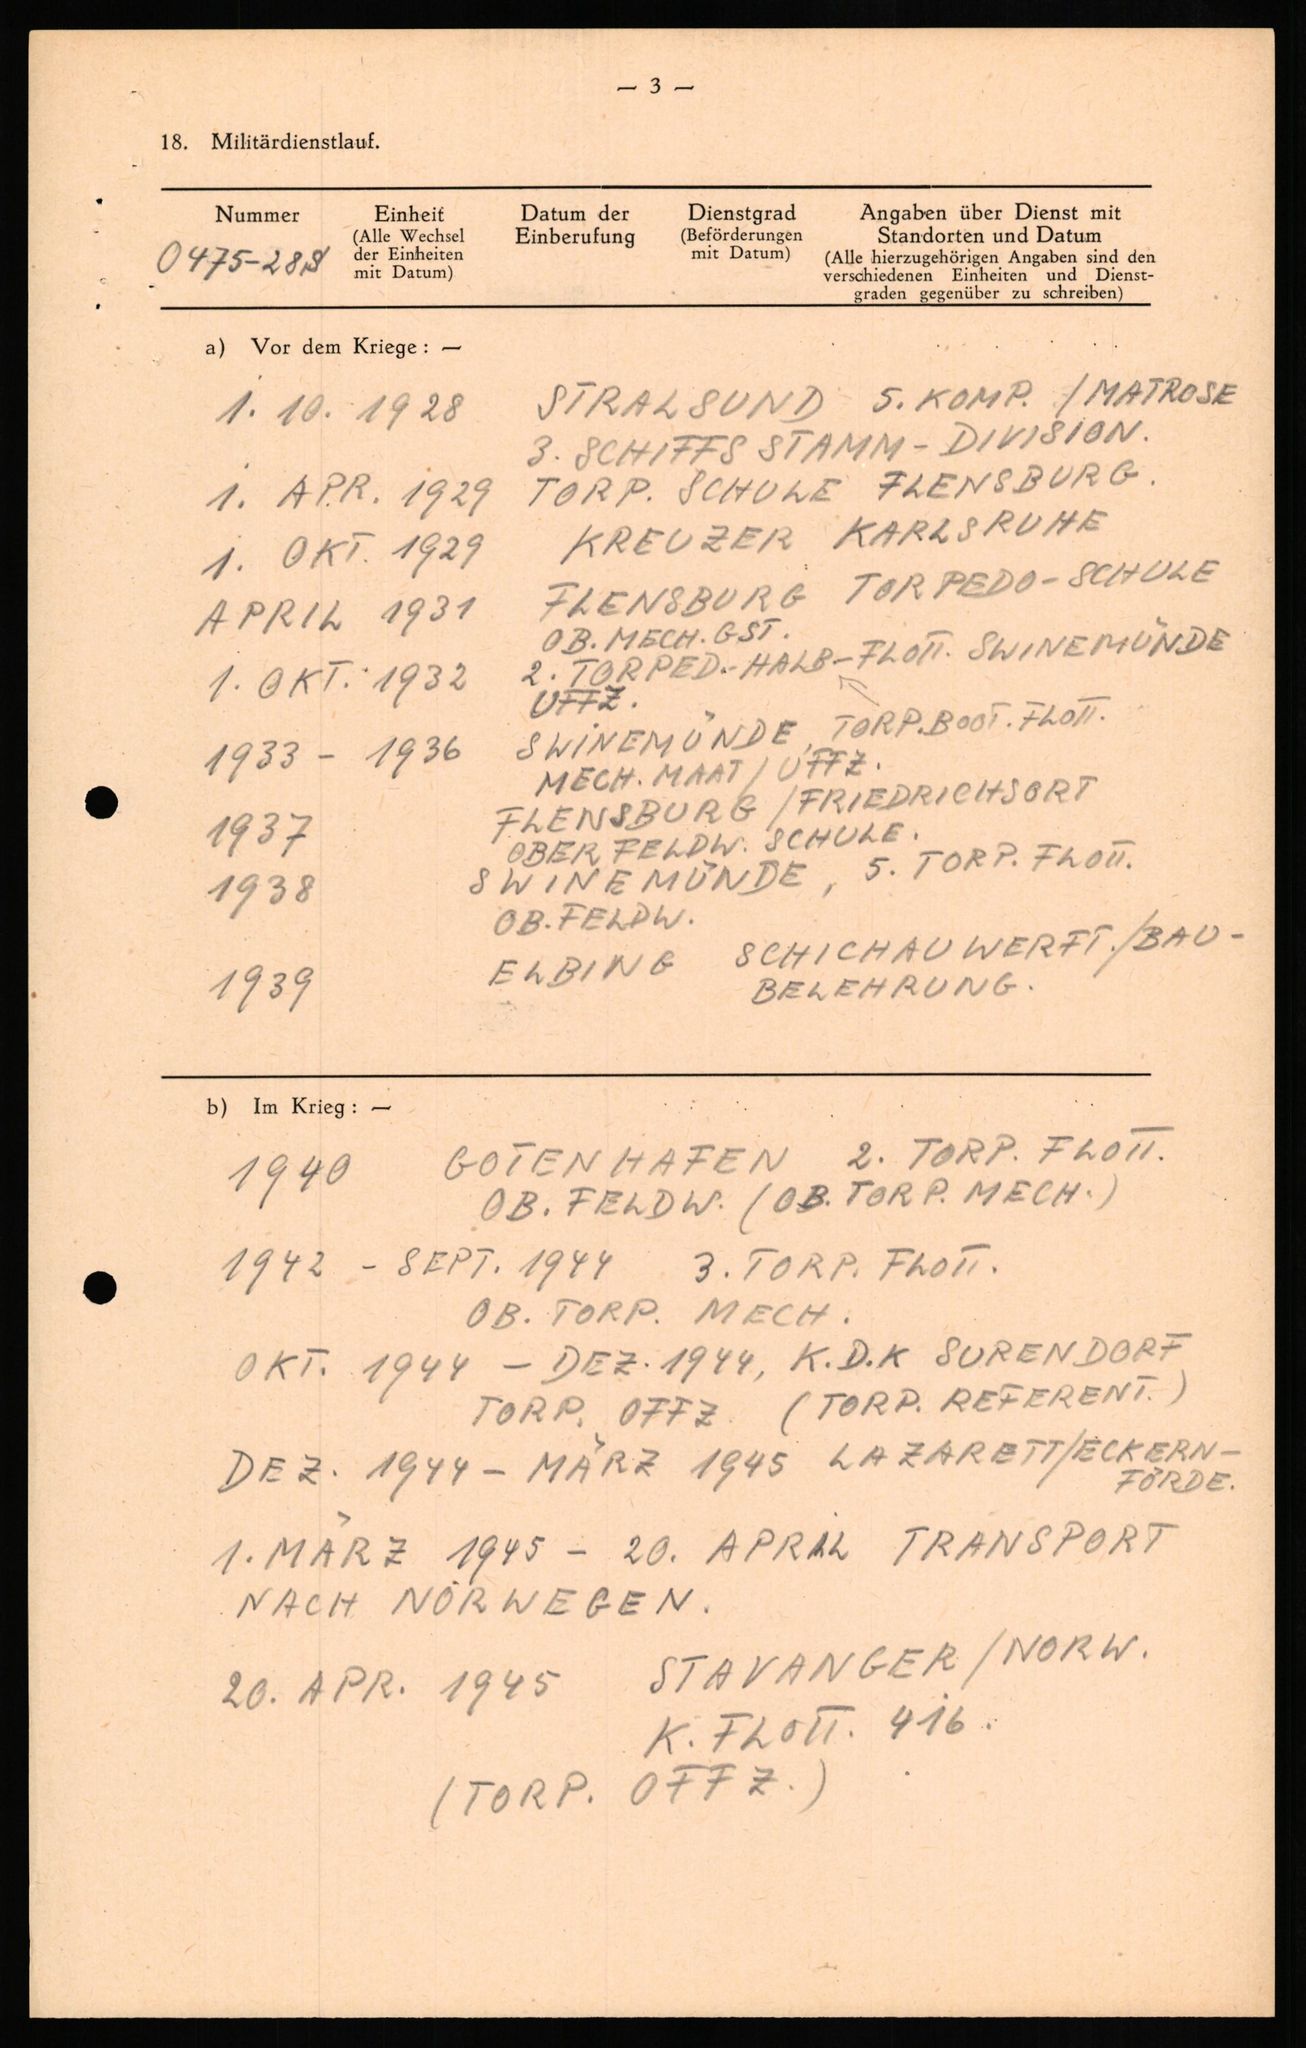 — 3 —
18. Militärdienstlauf.
Nummer
0475-28S
Einheit
(Alle Wechsel
der Einheiten
mit Datum)
Datum der
Einberufung
Dienstgrad
(Beförderungen
mit Datum)
Angaben über Dienst mit
Standorten und Datum
(Alle hierzugehörigen Angaben sind den
verschiedenen Einheiten und Dienst-
graden gegenüber zu schreiben)
a) Vor dem Kriege: —
1. 10. 1928 STRALSUND 5. KOMP. / MATROSE
3. SCHIFFSSTAMM-DIVISION.
1. APR. 1929 TORP. SCHULE FLENSBURG.
1. OKT. 1929 KREUZER KARLSRUHE
APRIL 1931 FLENSBURG TORPEDO-SCHULE
OB. MECH. GST.
1. OKT. 1932 2. TORPED.-HALB-FLOTT. SWINEMÜNDE
UFFZ.
1933 - 1936 SWINEMÜNDE, TORP.BOOT. FLOTT.
MECH. MAAT / UFFZ.
1937 FLENSBURG / FRIEDRICHSORT
OBER FELDW. SCHULE.
1938 SWINEMÜNDE, 5. TORP. FLOTT.
OB. FELDW.
1939 ELBING SCHICHAUWERFT. / BAU-
BELEHRUNG.
b) Im Krieg: —
1940 GOTENHAFEN 2. TORP. FLOTT.
OB. FELDW. (OB. TORP. MECH.)
1942 - SEPT. 1944 3. TORP. FLOTT.
OB. TORP. MECH.
OKT. 1944 - DEZ. 1944, K.D.K SURENDORF
TORP. OFFZ (TORP. REFERENT.)
DEZ. 1944 - MÄRZ 1945 LAZARETT/ECKERN-
FÖRDE.
1. MÄRZ 1945 - 20. APRIL TRANSPORT
NACH NORWEGEN.
20. APR. 1945 STAVANGER / NORW.
K. FLOTT. 416.
(TORP. OFFZ.)